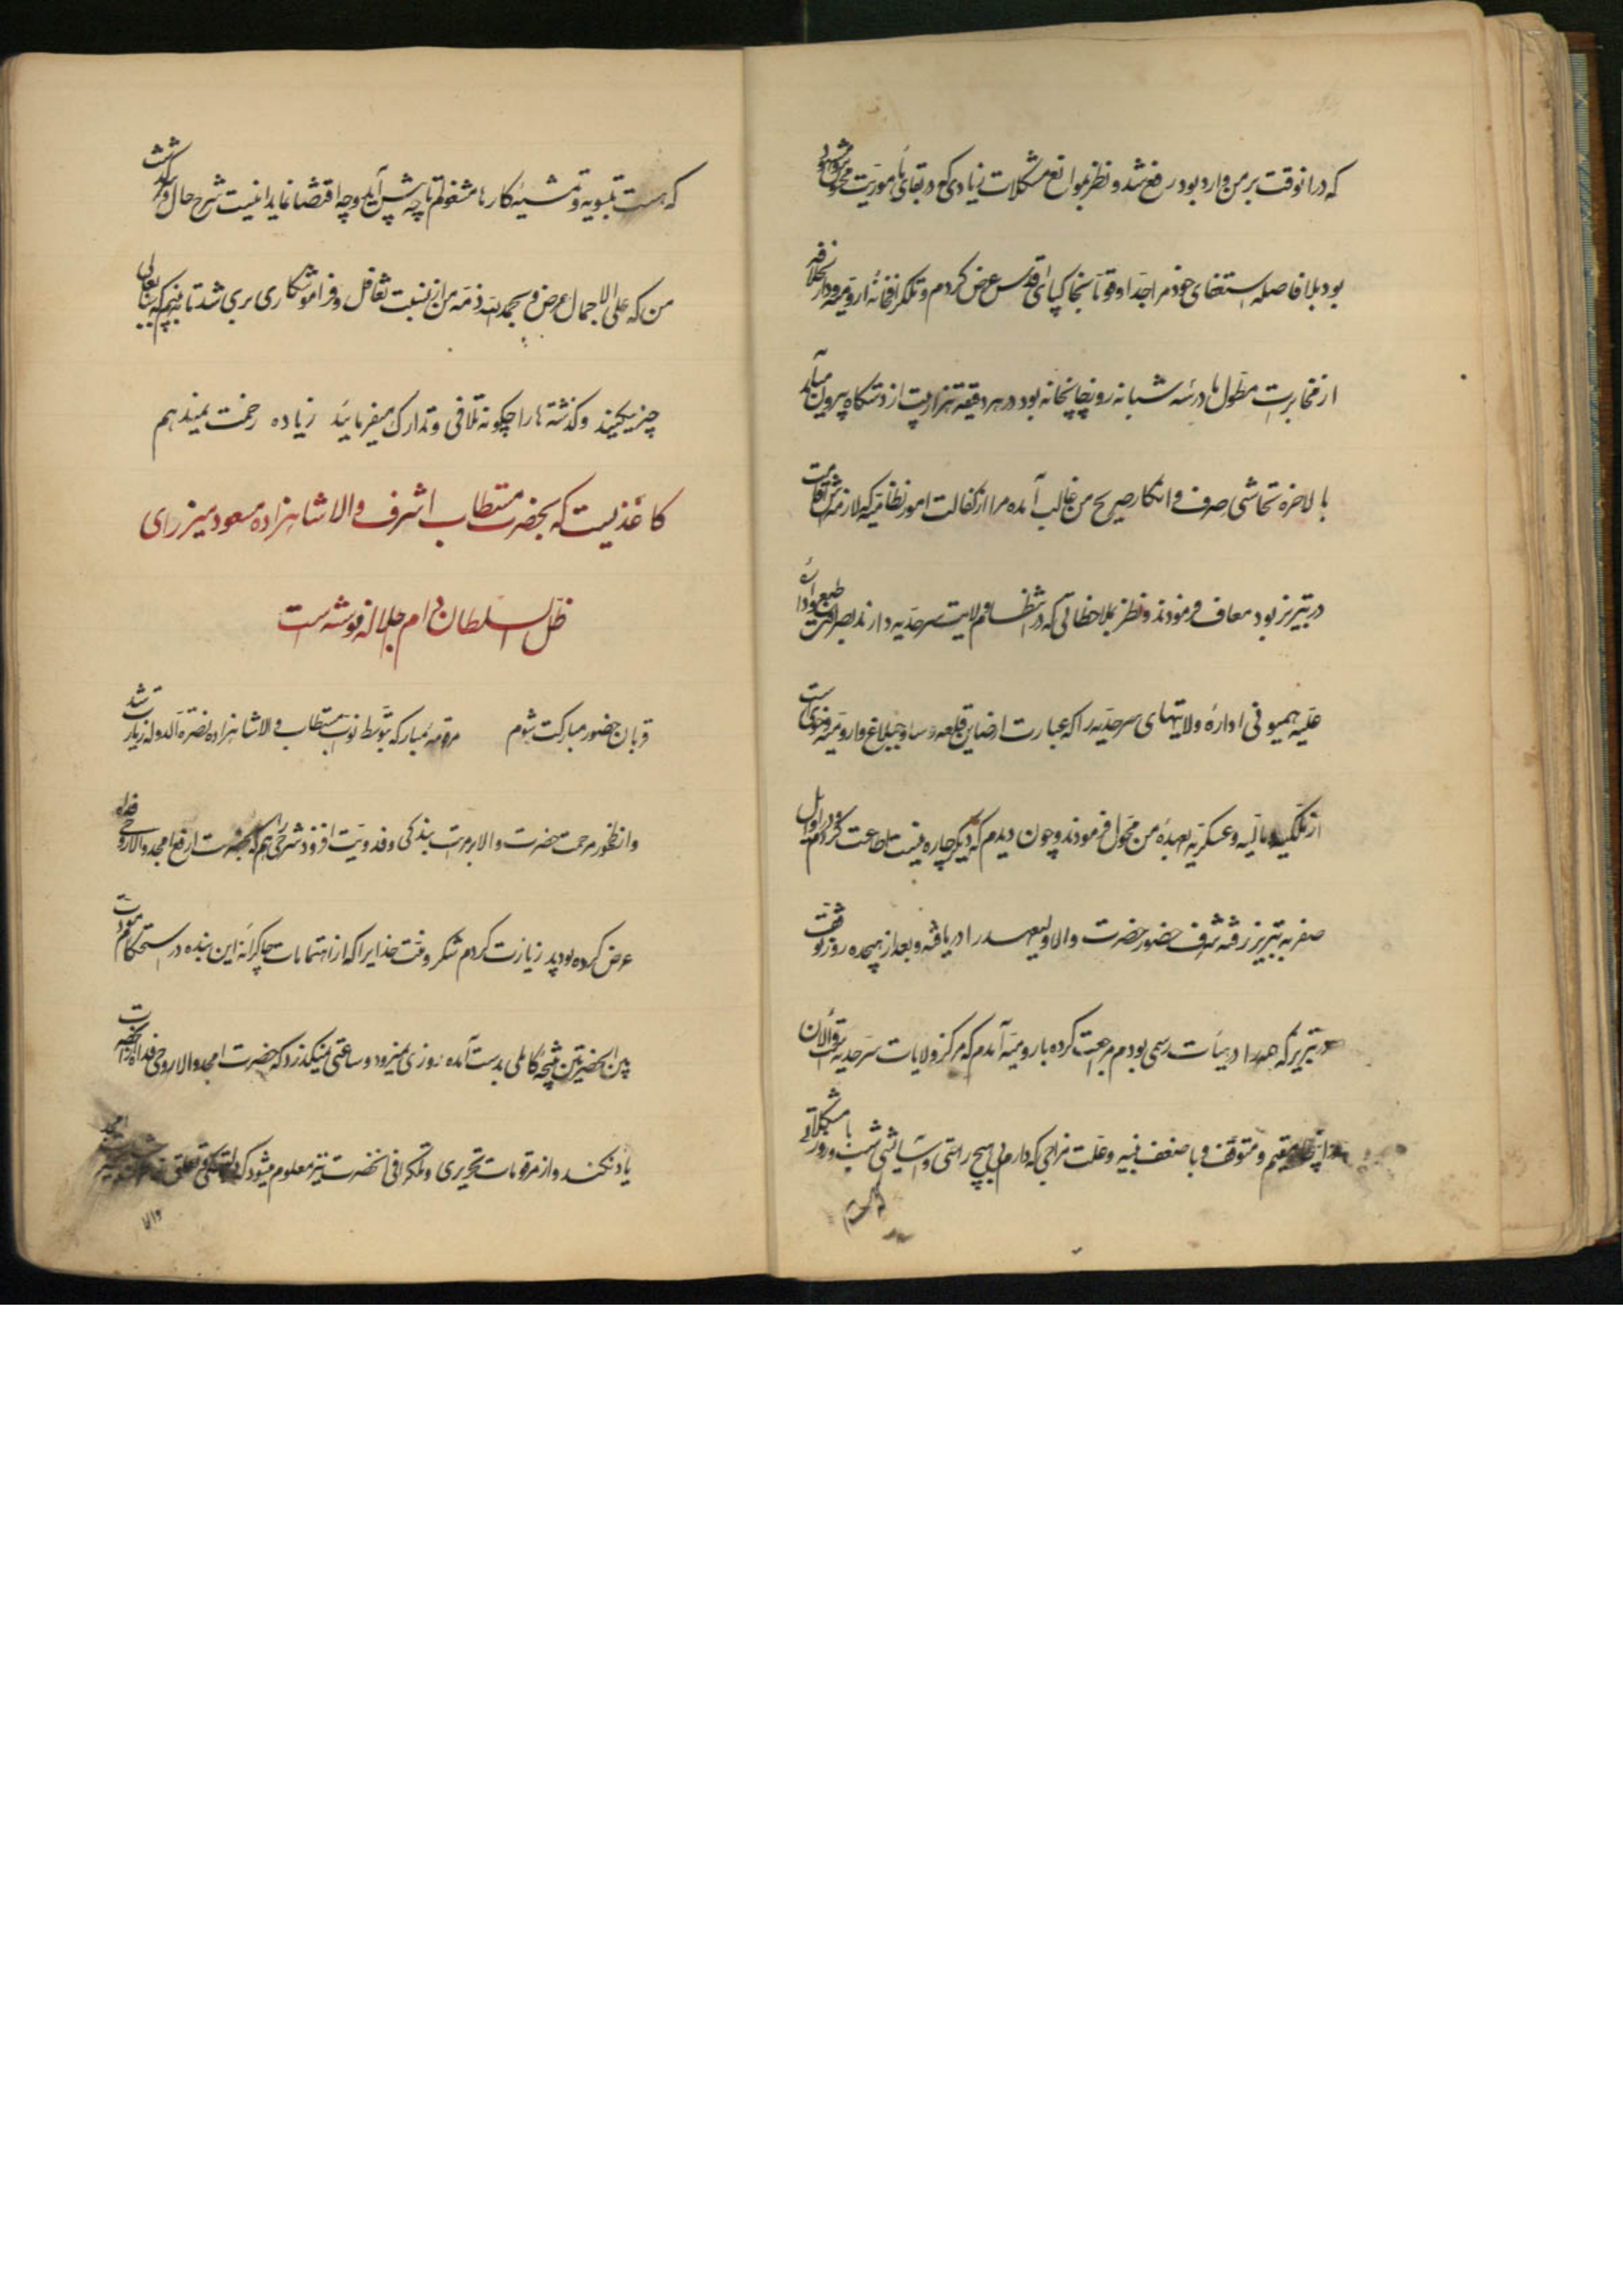 که در آنوقت بر من وارد بود رفع شد و نظر بموانع مشکلات زیادی که در بقای مأموریت
بود بلافاصله استعفای خود مراجداً و قویاً بخاکپای اقدس عرض کردم و تلگرافخانه ارومیه و دارالخلافه
از مخابرات مطول ما در سه شبانه روز چاپخانه بود در هر دقیقه از دستگاه بیرون میآمد
بالاخره تحاشی صرف و انکار صریح من غالب آمده مرا از کفالت امور نظامیه که لازمه
در تبریز بود معاف فرمودند و نظر بملاحظاتی که در انتظام ولایت سرحدیه دارند
علیه همیونی اداره ولایتهای سرحدیه را که عبارت از صاین قلعه و ساوجبلاغ و ارومیه و خوی است
از ملکیه و مالیه و عسکریه بعهدهٔ من محول فرمودند و چون دیدم که دیگر چاره نیست اطاعت کردم در اوایل
صفر به تبریز رفته شرف حضور حضرت والا ولیعهد را دریافته و بعد از هیجده روز توقف
در تبریز که همه را در هیأت رسمی بودم مراجعت کرده بارومیه آمدم که مرکز ولایات سرحدیه است و الآن
مقیم و متوقف و با ضعف بنیه و علت مزاجی که دارم بی هیچ راحتی و آسایشی شب و روز با مشکلاتی
که هست بتسویه و تمشیهٔ کارها مشغولم تا چه پیش آید و چه اقتضا نماید اینست شرح حال و سرگذشت
من که علی الاجمال عرض و بحمدالله ذمّه من از نسبت تغافل و فراموشکاری بری شد تا ببینم که جنابعالی
چه میکنید و گذشته ها را چگونه تلافی و تدارک میفرمائید زیاده زحمت نمیدهم
کاغذیست که بحضرت مستطاب اشرف والا شاهزاده مسعود میرزای
ظل السلطان دام جلاله نوشته است
قربان حضور مبارکت شوم مرقومهٔ مبارکه بتوسط نواب مستطاب والا شاهزاده نصرة الدوله زیارت شد
و از ظهور مرحمت حضرت والا بر مراتب بندگی و فدویت افزود شرحی را هم که بحضرت ارفع امجد والا روحی فداه
عرض کرده بودید زیارت کردم شکر و منت خدایرا که از اهتمامات چاکرانه این بنده در استحکام مودت
بین الحضرتین نتیجهٔ کاملی بدست آمده روزی نمیرود و ساعتی نمیگذرد که حضرت امجد والا روحی فداه از آنحضرت
یاد نکنند و از مرقومات تحریری و تلگرافی آنحضرت نیز معلوم میشود که